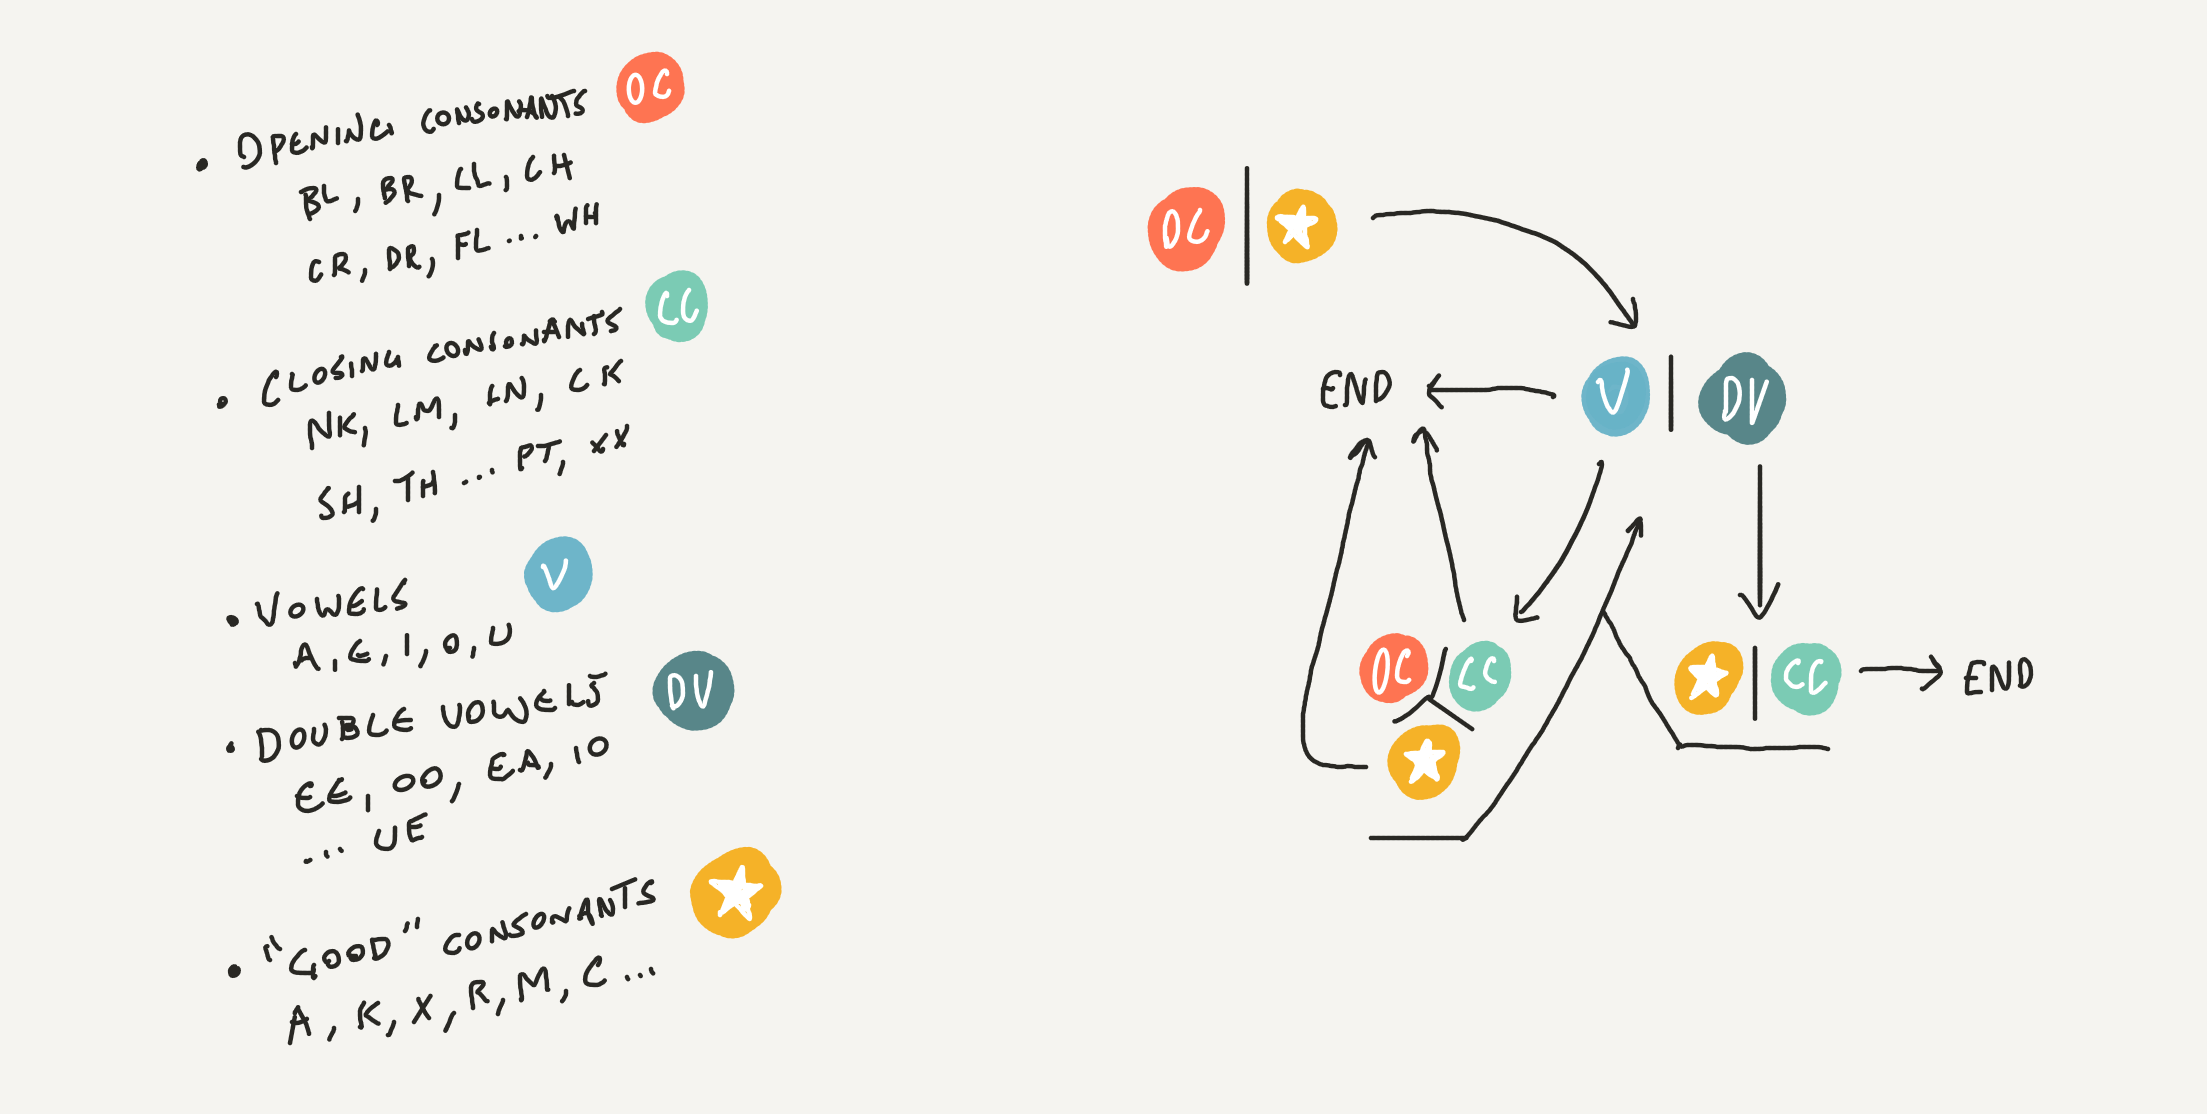 • OPENING CONSONANTS OC
BL, BR, CL, CH
CR, DR, FL ... WH
• CLOSING CONSONANTS CC
NK, LM, LN, CK
SH, TH ... PT, XX
• VOWELS V
A, E, I, O, U
• DOUBLE VOWELS DV
EE, OO, EA, IO
... UE
• "GOOD" CONSONANTS
A, K, X, R, M, C ...
OC
END V DV
OC CC
CC END